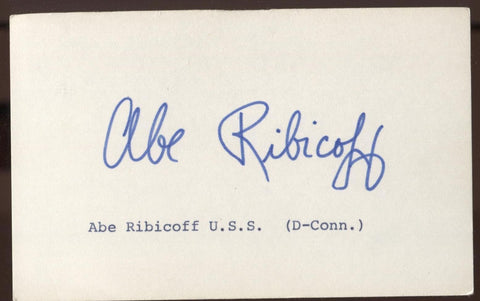 Abe Ribicoff
Abe Ribicoff U.S.S. (D-Conn.)